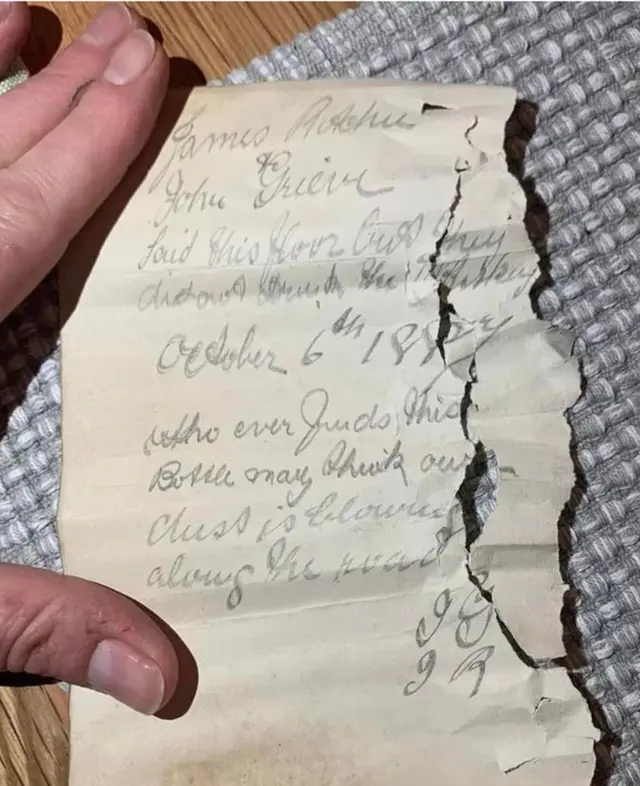 James Ritchie
&
John Grieve
laid this floor but they
did not drink the Whiskey
October 6th 1887
who ever finds this
Bottle may think our
dust is blowing
along the road
J G
J R